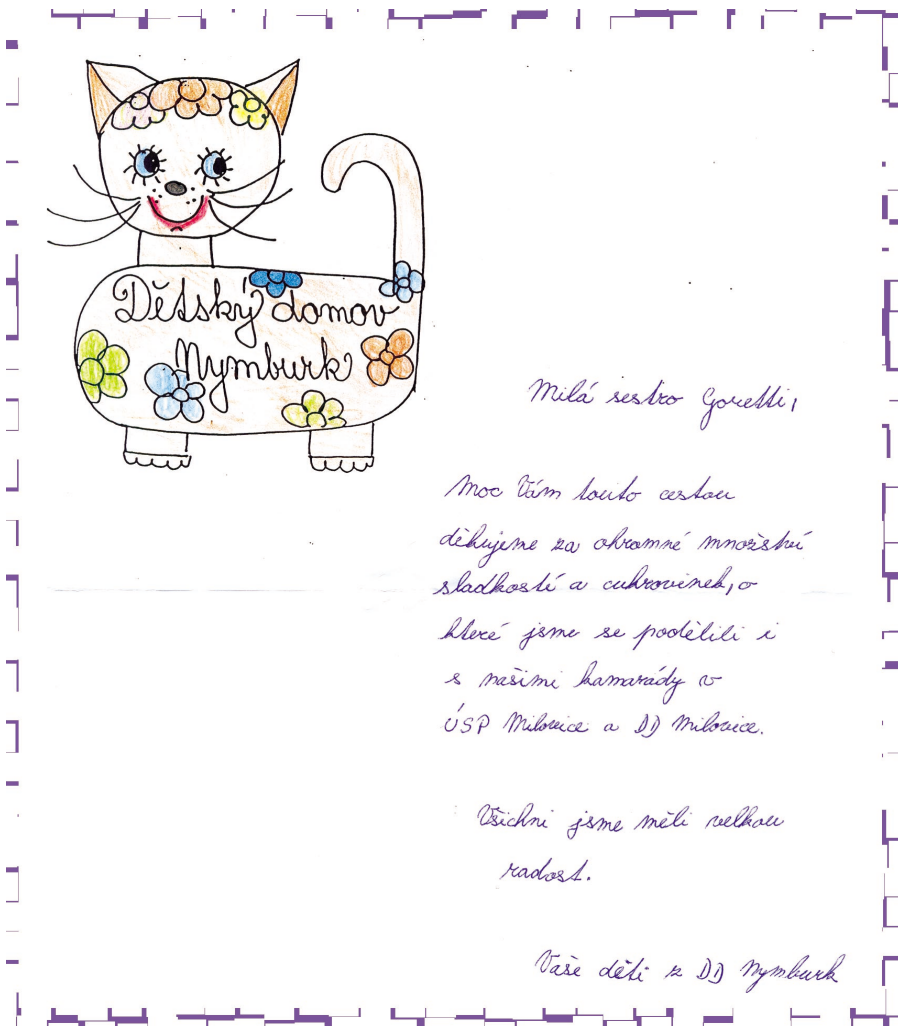 Dětský domov
Nymburk
Milá sestro Goretti,
Moc Vám touto cestou
děkujeme za ohromné množství
sladkostí a cukrovinek, o
které jsme se podělili i
s našimi kamarády v
ÚSP Milovice a DD Milovice.
Všichni jsme měli velkou
radost.
Vaše děti z DD Nymburk